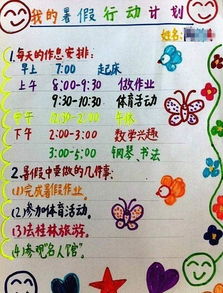 我的暑假行动计划
姓名:
1.每天的作息安排:
早上 7:00 起床
上午 8:00-9:30 做作业
9:30-10:30 体育活动
中午 12:30-2:00 午休
下午 2:00-3:00 数学兴趣
3:00-5:00 钢琴、书法
2.暑假中要做的几件事:
(1)完成暑假作业。
(2)参加体育活动。
(3)去桂林旅游。
(4)参观“名人馆”。